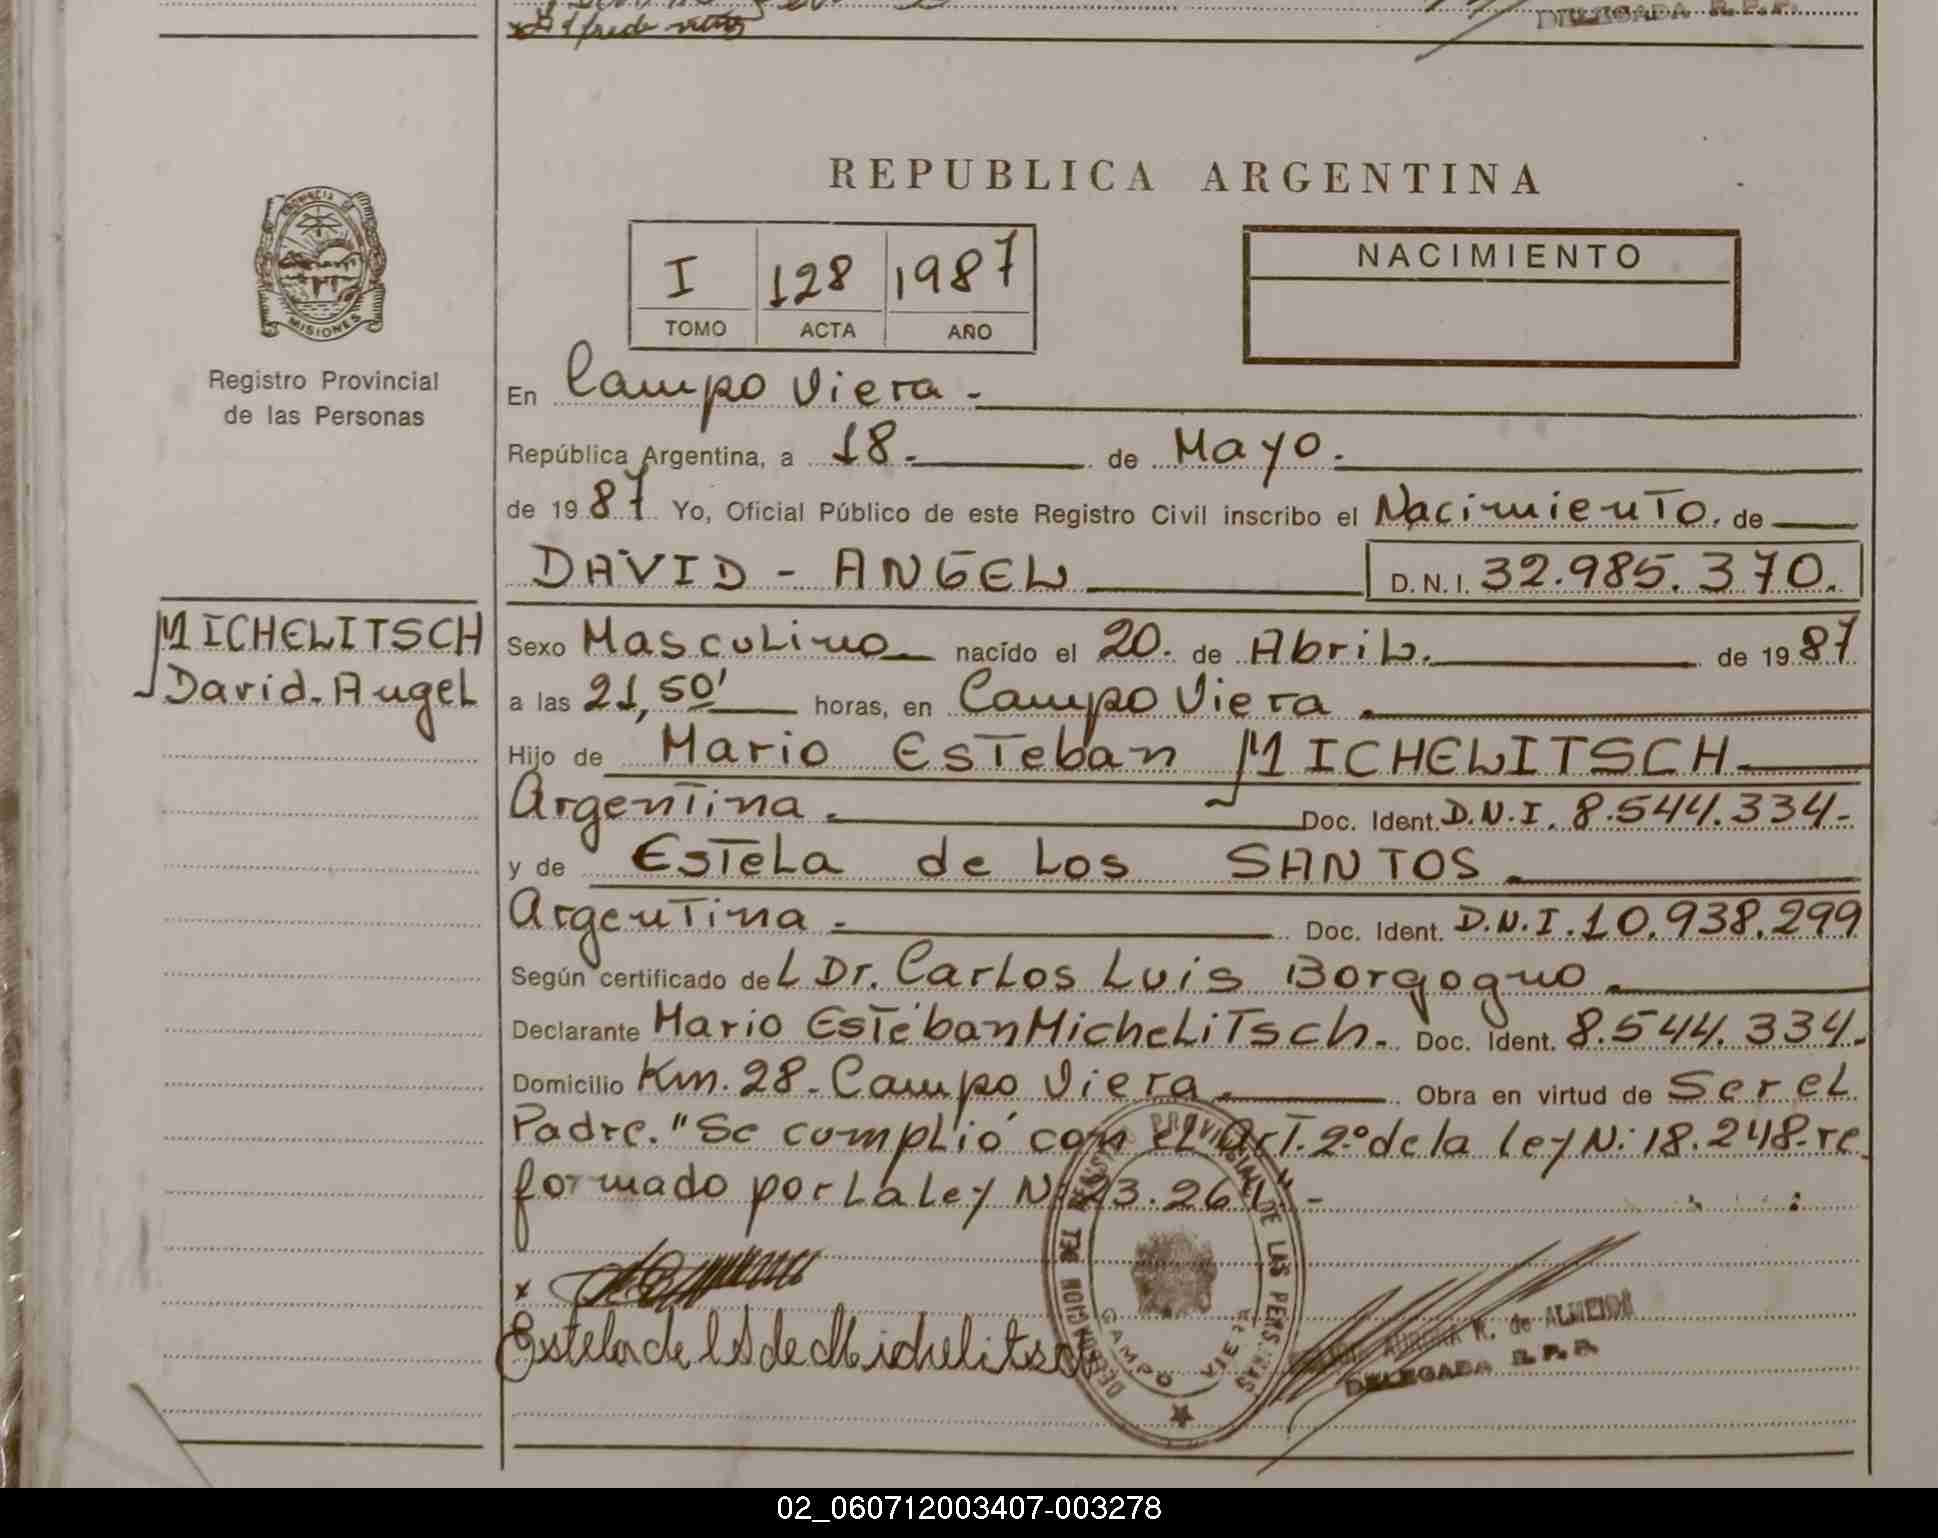 DELEGADA R.P.P.
Alfredo
REPUBLICA ARGENTINA
PROVINCIA DE
MISIONES
Registro Provincial
de las Personas
I 128 1987
TOMO ACTA AÑO
NACIMIENTO
En Campo Viera.-
República Argentina, a 18.- de Mayo.
de 1987 Yo, Oficial Público de este Registro Civil inscribo el Nacimiento. de
DAVID - ANGEL D.N.I. 32.985.370.
MICHELITSCH
David. Angel
Sexo Masculino nacido el 20. de Abril. de 1987
a las 21,50' horas, en Campo Viera.
Hijo de Mario Esteban MICHELITSCH
Argentina. Doc. Ident. D.N.I. 8.544.334-
y de Estela de Los SANTOS
Argentina - Doc. Ident. D.N.I. 10.938.299
Según certificado del Dr. Carlos Luis Borgogno
Declarante Mario Esteban Michelitsch. Doc. Ident. 8.544.334.
Domicilio Km. 28- Campo Viera Obra en virtud de Ser el
Padre. "Se cumplió con el Art. 2º de la Ley N: 18.248-re
formado por La Ley N: 23.264"-
Estela de l S de Michelitsch
DELEGACION DEL REGISTRO PROVINCIAL DE LAS PERSONAS
CAMPO VIERA
AURORA R. de ALMEIDA
DELEGADA R.P.P.
02_060712003407-003278